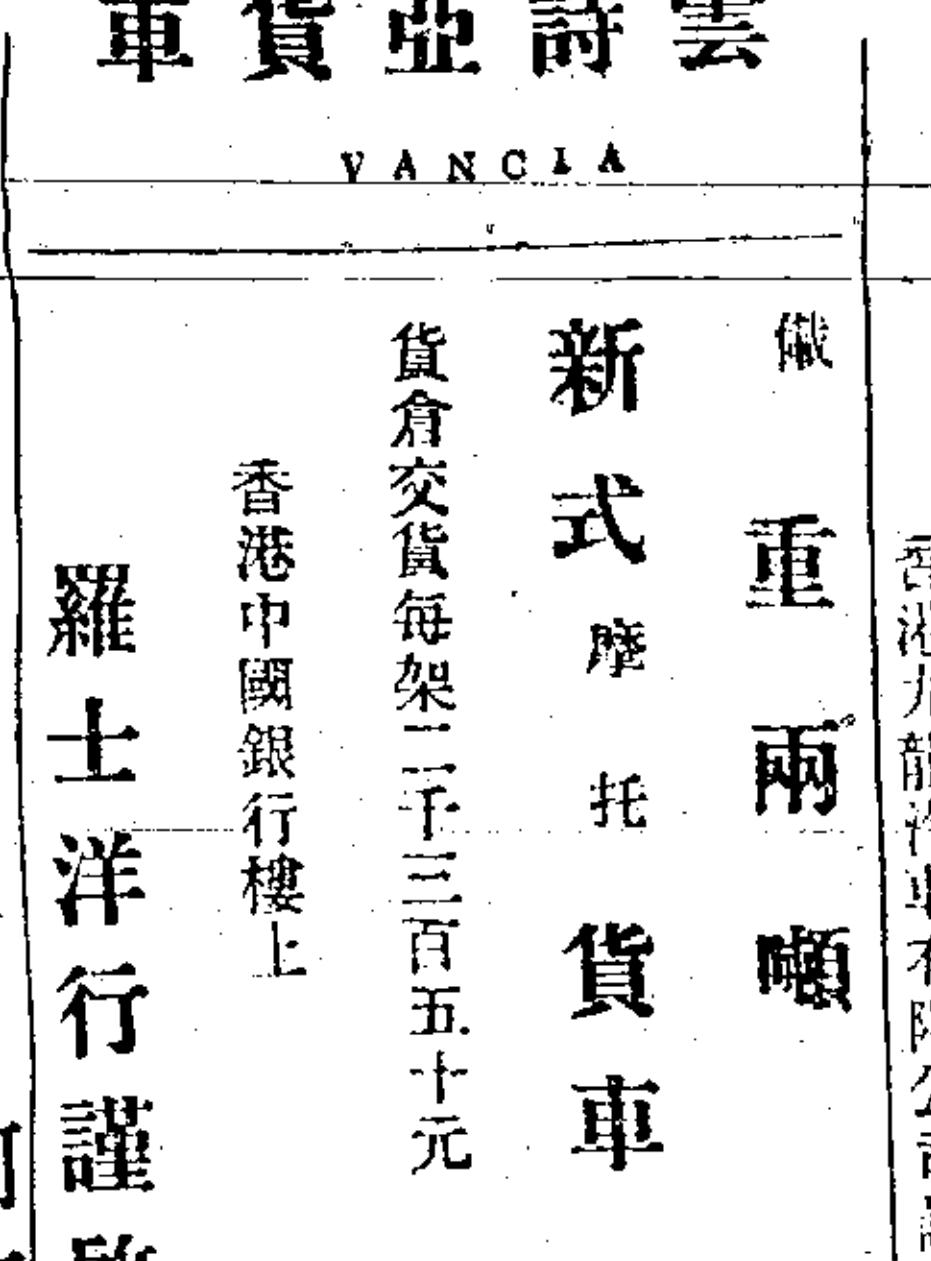 雲詩亞貨車
VANCIA
儎重兩噸
新式摩托貨車
貨倉交貨每架二千三百五十元
香港中國銀行樓上
羅士洋行謹